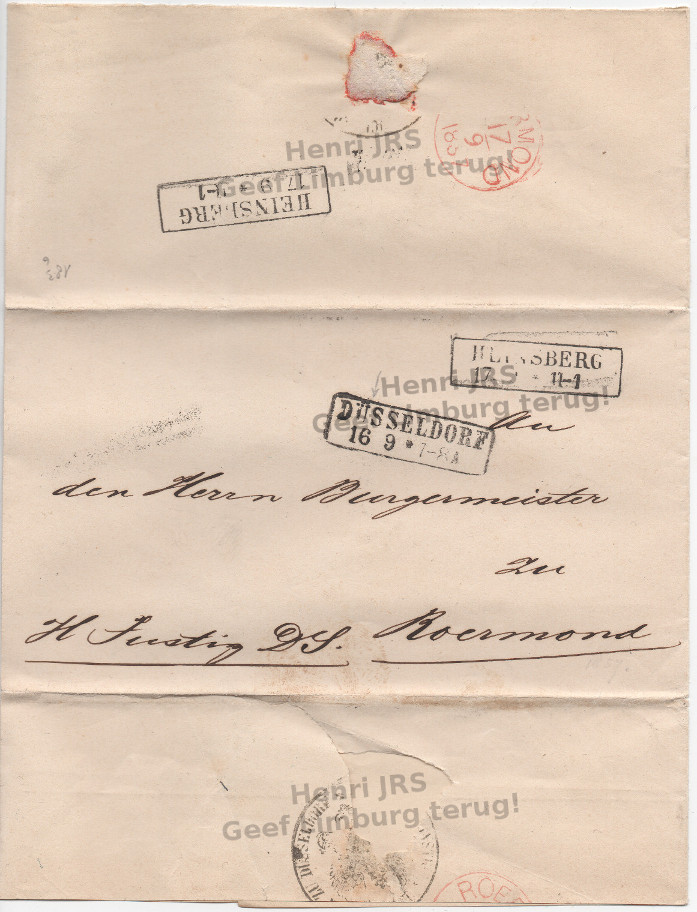 RMOND
17
9
185
Henri JRS
Geef Limburg terug!
HEINSBERG
17 9 * 11-1
HEINSBERG
17 * 11-1
Henri JRS
Geef Limburg terug!
DÜSSELDORF
16 9 * 7-8A
An
den Herrn Burgermeister
zu
H Justiz DS. Roermond
Henri JRS
Geef Limburg terug!
ZU DÜSSELDORF
ROER